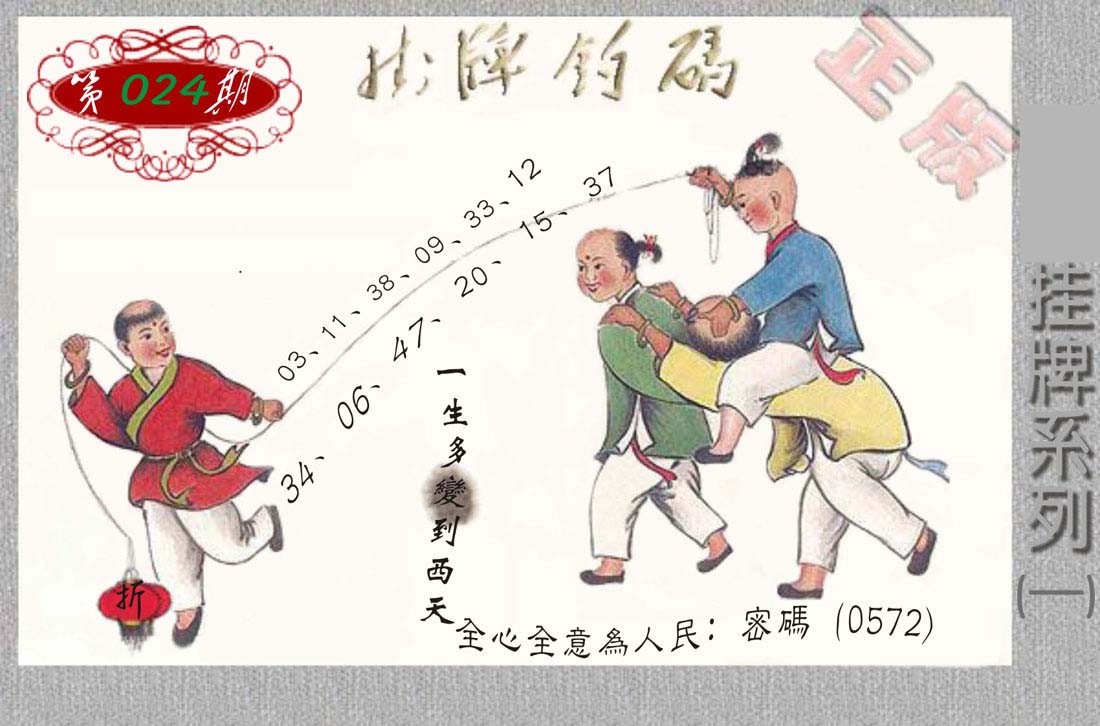 第024期
挂牌钓碼
正版
03、11、38、09、33、12
34、06、47、20、15、37
一生多變到西天
折
全心全意為人民：密碼（0572）
挂牌系列(一)